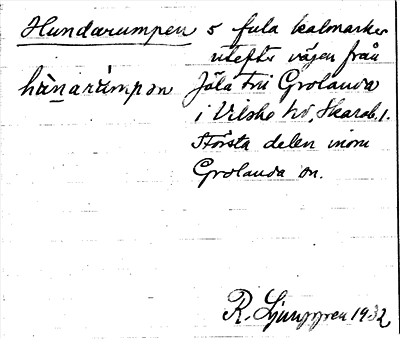 Hundarumpen 5 fula kalmarker
utefter vägen från
hu̇narùmpən Jäla till Grolanda
i Vilske hd, Skarab. l.
Största delen inom
Grolanda sn.
R. Ljunggren 1932